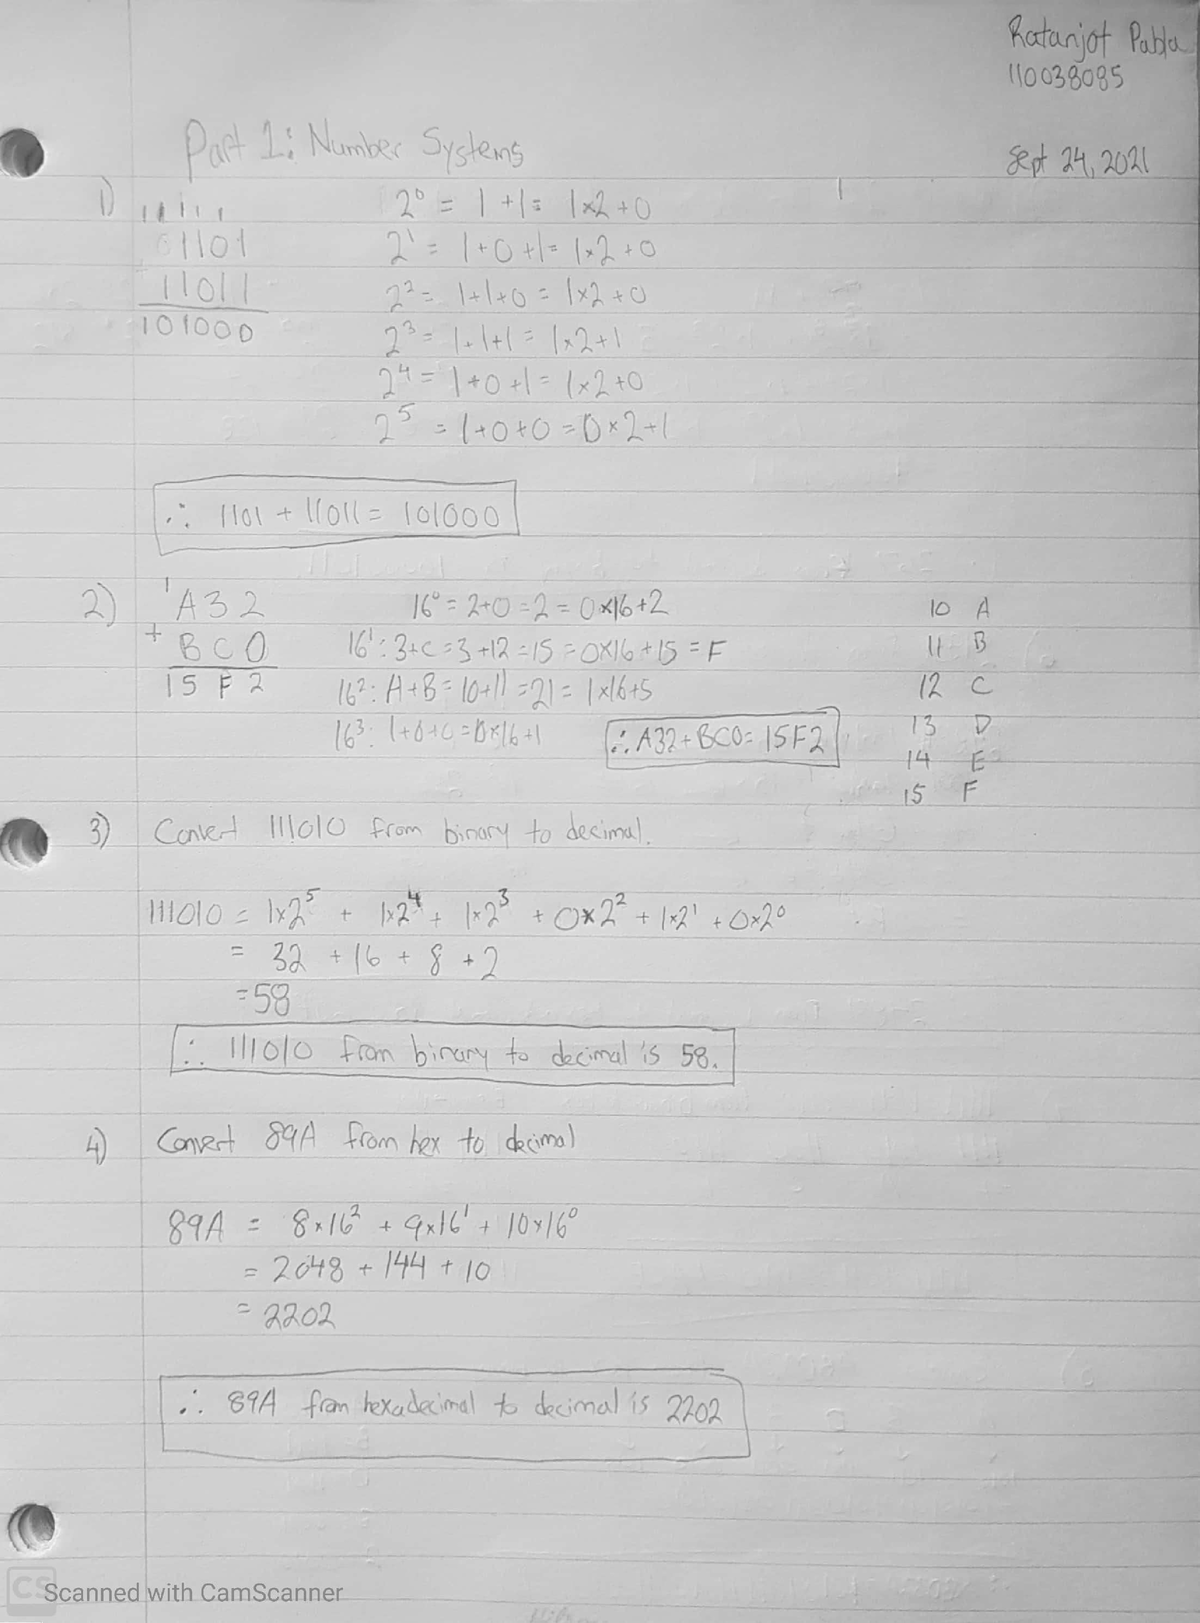 Ratanjot Pabla
110038085
Sept 24, 2021
Part 1: Number Systems
1)
1 1 1 1 1
01101
11011
101000
2⁰ = 1 + 1 = 1×2 + 0
2¹ = 1+0+1 = 1×2+0
2² = 1+1+0 = 1×2+0
2³ = 1+1+1 = 1×2+1
2⁴ = 1+0+1 = 1×2+0
2⁵ = 1+0+0 = 0×2+1
∴ 1101 + 11011 = 101000
2)
1
A32
+ BC0
15F2
16⁰ = 2+0 = 2 = 0×16+2
16¹: 3+C = 3+12 = 15 = 0×16+15 = F
16²: A+B = 10+11 = 21 = 1×16+5
16³: 1+0+0 = 0×16+1
∴ A32+BC0 = 15F2
10 A
11 B
12 C
13 D
14 E
15 F
3) Convert 111010 from binary to decimal.
111010 = 1×2⁵ + 1×2⁴ + 1×2³ + 0×2² + 1×2¹ + 0×2⁰
= 32 + 16 + 8 + 2
= 58
∴ 111010 from binary to decimal is 58.
4) Convert 89A from hex to decimal
89A = 8×16² + 9×16¹ + 10×16⁰
= 2048 + 144 + 10
= 2202
∴ 89A from hexadecimal to decimal is 2202
CS Scanned with CamScanner